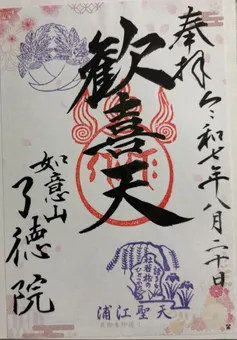 奉拝
令和七年八月二十日
歓喜天
如意山
了徳院
浦江聖天